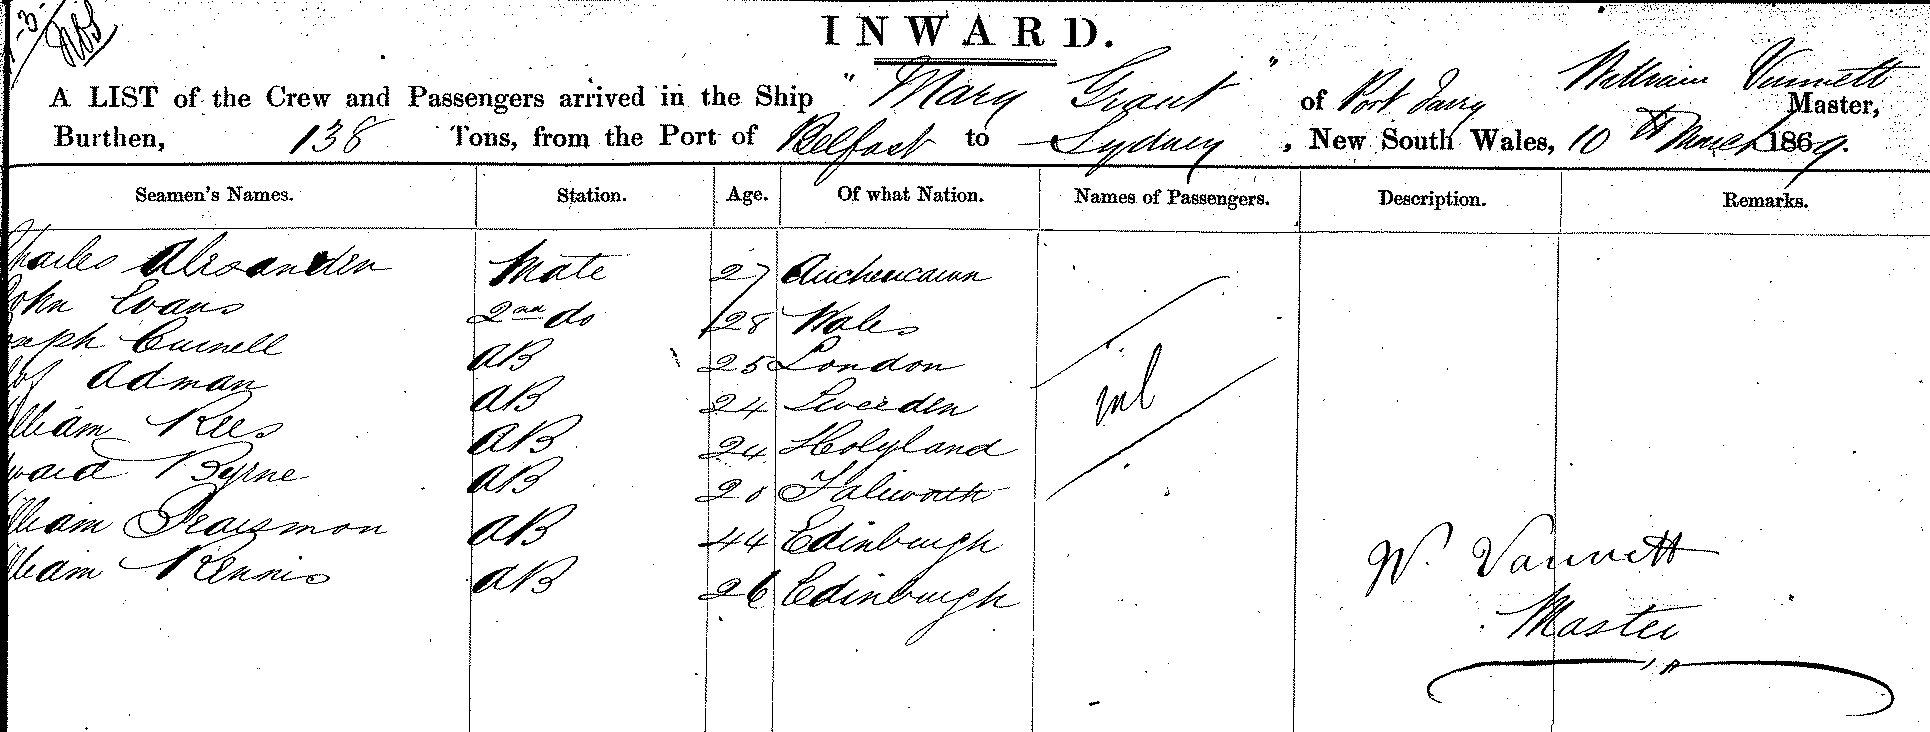 INWARD.
William Vannett
A LIST of the Crew and Passengers arrived in the Ship "Mary Grant" of Master,
Burthen, 138 Tons, from the Port of Belfast to Sydney, New South Wales, 10th March 1869.
Seamen's Names. Station. Age. Of what Nation. Names of Passengers. Description. Remarks.
Charles Alexander Mate 27 Auchencairn
John Evans 2nd do 28 Wales
Curnell AB 25 London
Adman AB 24 Sweeden
nil
William Rees AB 24 Holyland
Byrne AB 20
William AB 44 Edinburgh
William Rennis AB 26 Edinburgh
W. Vannett
Master